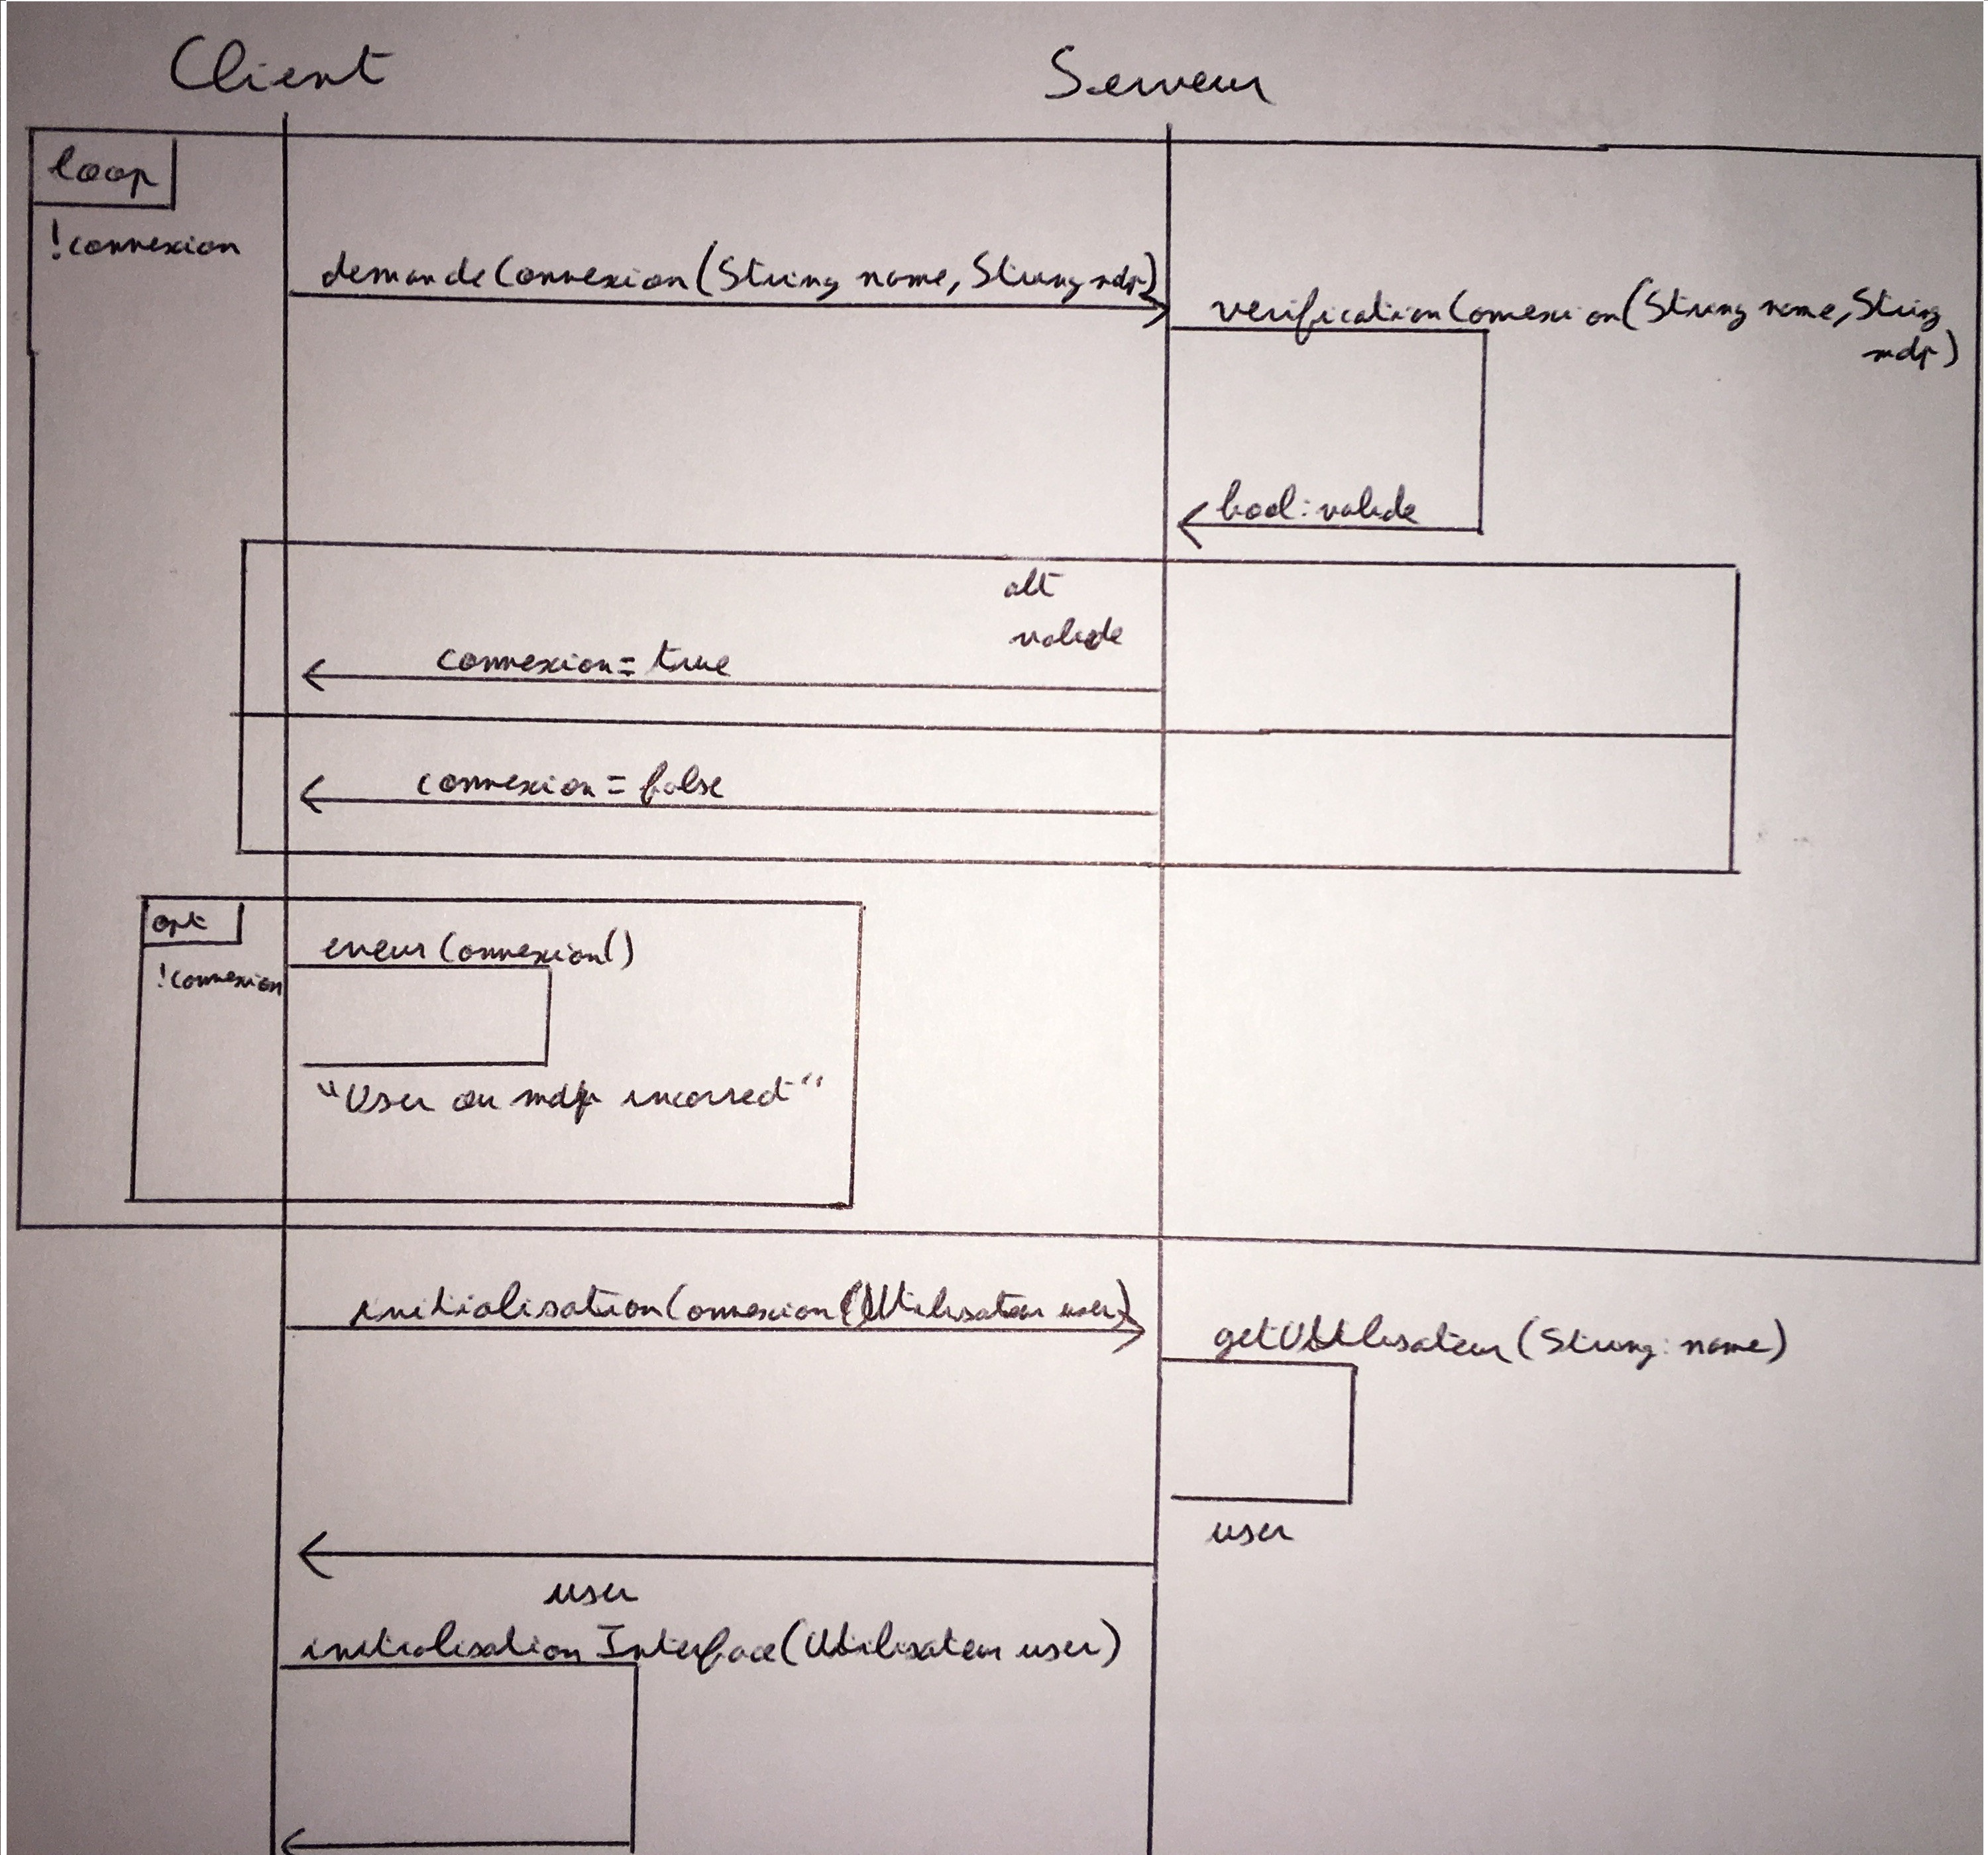 Client
Serveur
loop
!connexion
demandeConnexion(String name, String mdp)
verificationConnexion(String name, String
mdp)
bool: valide
alt
valide
connexion = true
connexion = false
opt
!connexion
erreurConnexion()
"User ou mdp incorrect"
initialisationConnexion(Utilisateur user)
getUtilisateur(String: name)
user
user
initialisationInterface(Utilisateur user)